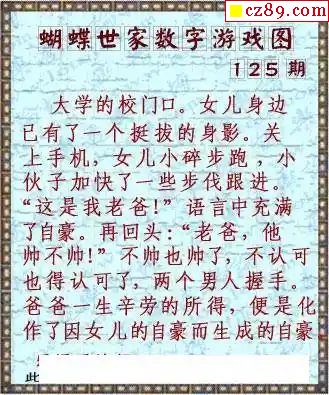 cz89.com
蝴蝶世家数字游戏图
125期
大学的校门口。女儿身边
已有了一个挺拔的身影。关
上手机，女儿小碎步跑，小
伙子加快了一些步伐跟进。
“这是我老爸！”语言中充满
了自豪。再回头：“老爸，他
帅不帅！”不帅也帅了，不认可
也得认可了，两个男人握手。
爸爸一生辛劳的所得，便是化
作了因女儿的自豪而生成的自豪
此